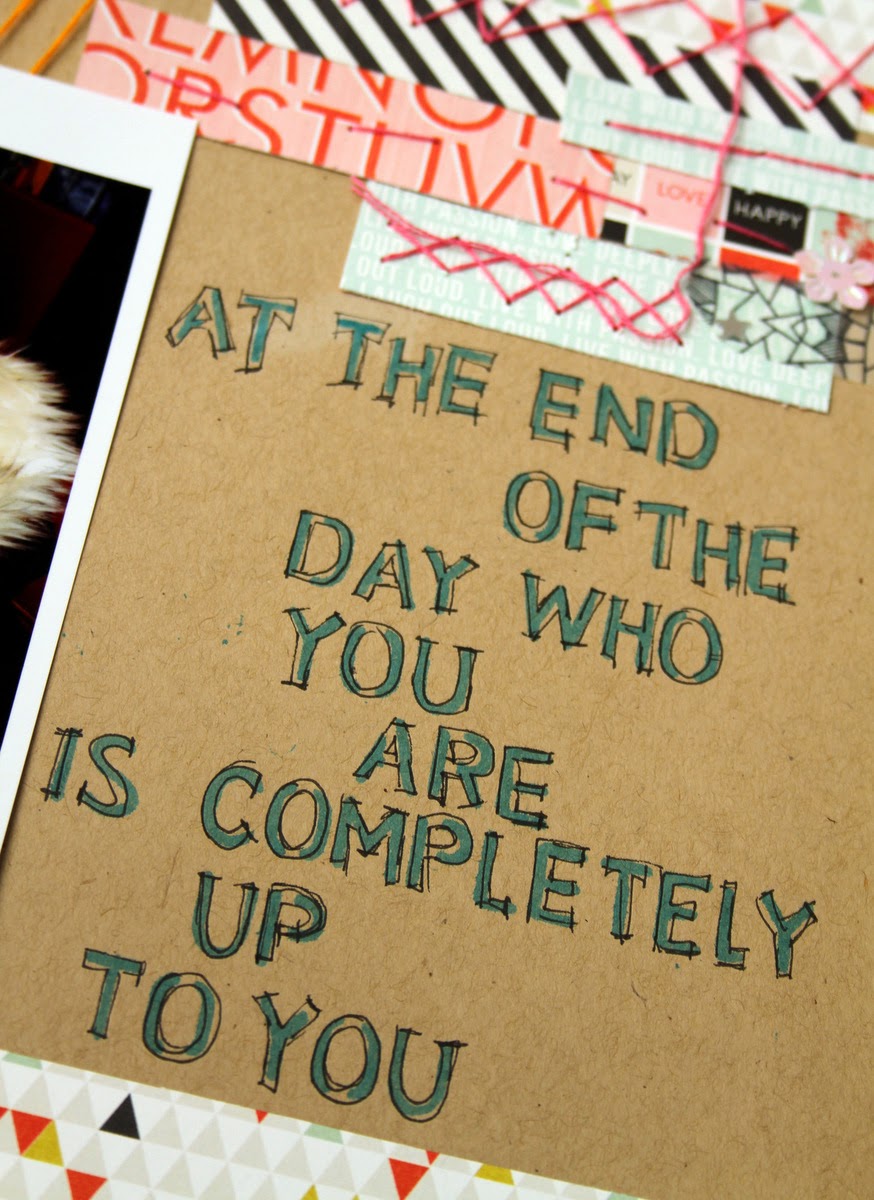 KLMNOP
QRSTUVW
LIVE WITH
LOVE
HAPPY
WITH PASSION. LOVE DEEPLY
OUT LOUD. LIVE WITH PASSION
LAUGH OUT LOUD.
LIVE WITH PASSION. LOVE DEEP
AT THE END
OF THE
DAY WHO
YOU
ARE
IS COMPLETELY
UP
TO YOU